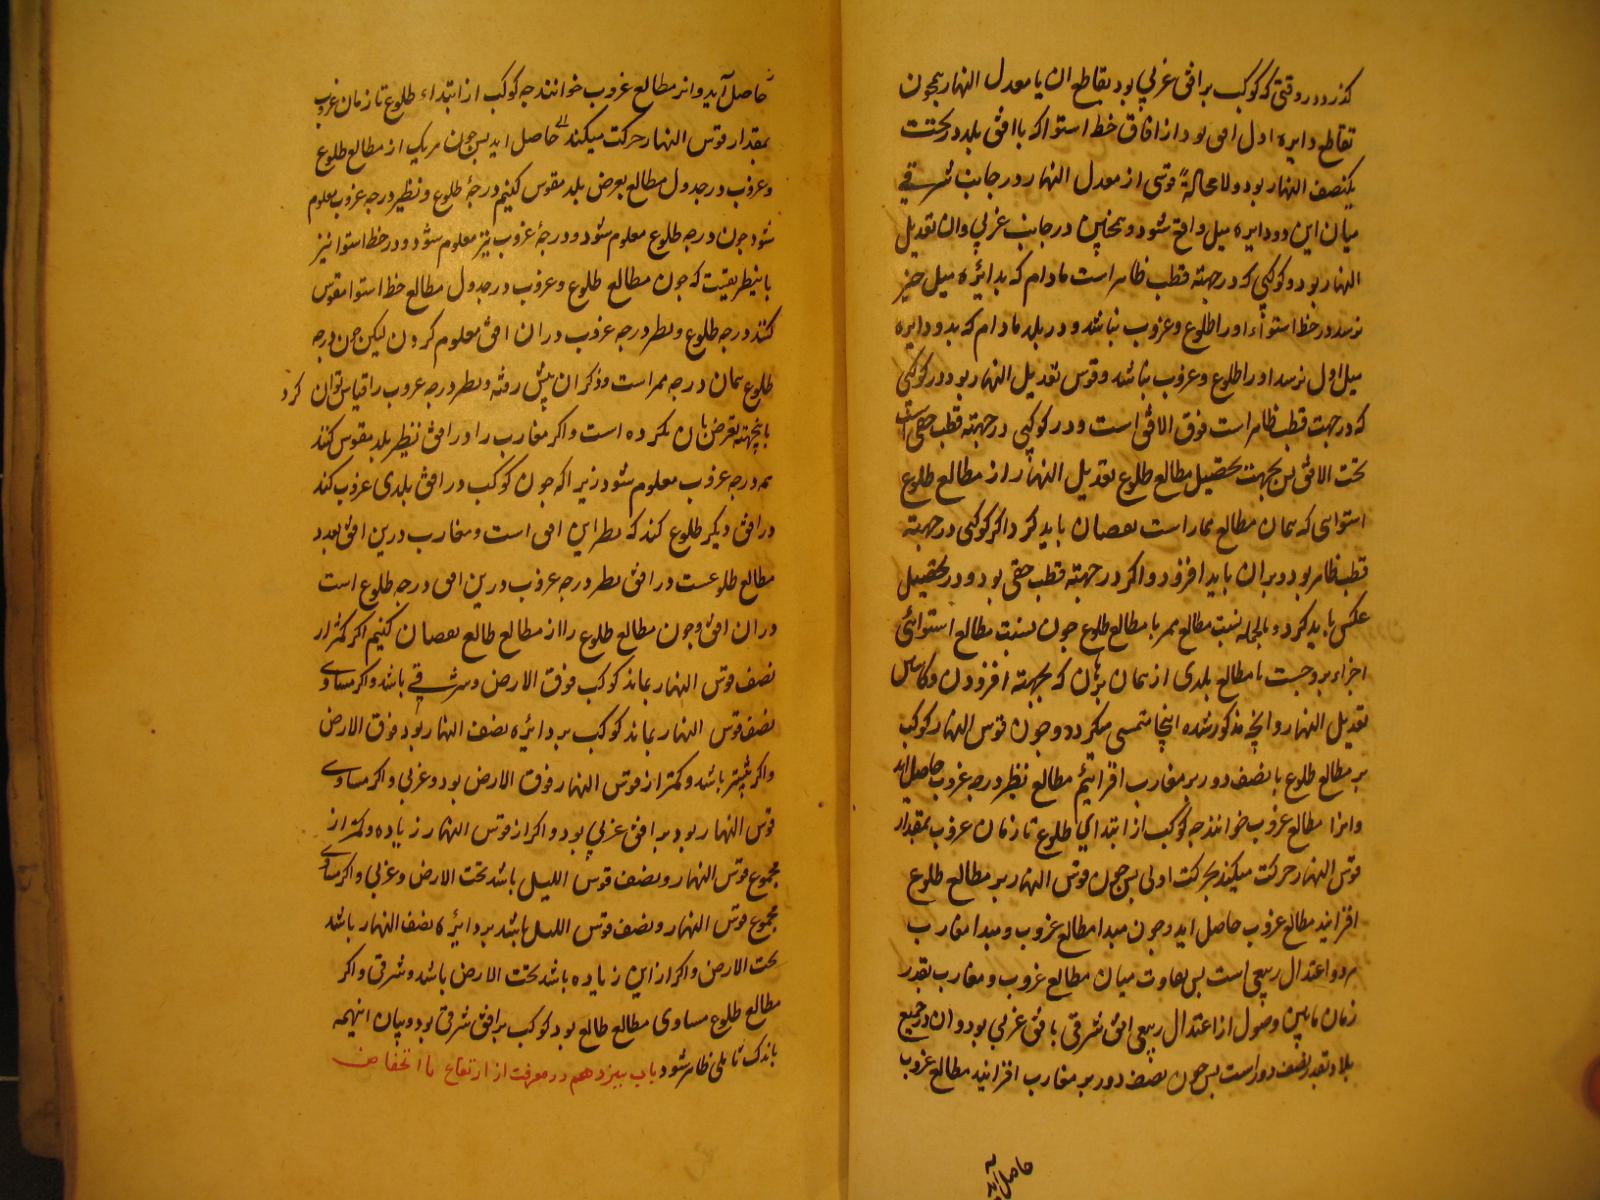 کذرد و در وقتی که کوکب بر افق غربی بود تقاطع ان با معدل النهار همچون
تقاطع دایره اول افقی بود از افاق خط استوا که با افق بلد در تحتت
یکنصف النهار بود و لا محالة قوسی از معدل النهار در جانب شرقی
میان این دو دایره میل واقع شود و همچنین در جانب غربی و ان تعدیل
النهار بود و کوکبی که در جهة قطب ظاهر است مادام که بدائره میل
نرسد در خط استواء او را طلوع و غروب نباشد و در بلد مادام که بدو دایره
میل اول نرسد او را طلوع و غروب نباشد و قوس تعدیل النهار بود در کوکبی
که در جهت قطب ظاهر است فوق الافق است و در کوکبی در جهة قطب خفی است
تحت الافق پس بجهت تحصیل مطالع طلوع تعدیل النهار را از مطالع طلوع
استوای که همان مطالع ممر است نقصان باید کرد و اکر کوکبی در جهة
قطب ظاهر بود و بر ان باید افزود و اکر در جهة قطب خفی بود و در تحصیل
عکس باید کرد و بالجمله نسبت مطالع ممر با مطالع طلوع چون نسبت مطالع استوائی
اجزاء بروجست با مطالع بلدی از همان برهان که بجهة افزودن و کاستن
تعدیل النهار و انچه مذکور شده اینجا متمسی میکردد و چون قوس النهار کوکب
بر مطالع طلوع با نصف دور بر مغارب افزائیم مطالع نظیر درجه غروب حاصل اید
و انرا مطالع غروب خوانند چه کوکب از ابتدای طلوع تا زمان غروب بمقدار
قوس النهار حرکت میکند بحرکت اولی پس چون قوس النهار بر مطالع طلوع
افزایند مطالع غروب حاصل اید و چون مبدا مطالع غروب و مبدا مغارب
هر دو اعتدال ربیعی است پس تفاوت میان مطالع غروب و مغارب بقدر
زمان مابین وصول از اعتدال ربیعی افق شرقی با فق غربی بود و ان در جمیع
بلاد بقدر نصف دور است پس چون نصف دور بر مغارب افزایند مطالع غروب
حاصل اید
حاصل آید و انرا مطالع غروب خوانند چه کوکب از ابتداء طلوع تا زمان غروب
بمقدار قوس النهار حرکت میکند حاصل اید پس چون هر یک از مطالع طلوع
و غروب در جدول مطالع بعرض بلد مقوس کنیم درجهٔ طلوع و نظیر درجه غروب معلوم
شود چون درجه طلوع معلوم شود و درجهٔ غروب نیز معلوم شود و در خط استوا نیز
باینطریقیت که چون مطالع طلوع و غروب در جدول مطالع خط استوا مقوس
کنند درجه طلوع و نظیر درجه غروب در ان افق معلوم کردن لیکن چون درجه
طلوع همان درجه ممر است و ذکر ان پیش رفته و نظیر درجه غروب را قیاس توان کرد
بانجهة تعرض بان نکرده است و اکر مغارب را در افق نظیر بلد مقوس کنند
همه درجه غروب معلوم شود زیرا که چون کوکب در افق بلدی غروب کند
در افق دیکر طلوع کند که نظیر این افق است و مغارب درین افق بعدد
مطالع طلوعست در افق نظیر درجه غروب درین افق درجه طلوع است
در ان افق و چون مطالع طلوع را از مطالع طالع نقصان کنیم اکر کمتر از
نصف قوس النهار بماند کوکب فوق الارض و شرقی باشد و اکر مساوی
نصف قوس النهار بماند کوکب بر دائره نصف النهار بود فوق الارض
و اکر بیشتر باشد و کمتر از قوس النهار فوق الارض بود و غربی و اکر مساوی
قوس النهار بود بر افق غربی بود و اکر از قوس النهار زیاده و کمتر از
مجموع قوس النهار و نصف قوس اللیل باشد تحت الارض و غربی و اکر مساوی
مجموع قوس النهار و نصف قوس اللیل باشد بر دائره نصف النهار باشد
تحت الارض و اکر از این زیاده باشد تحت الارض باشد و شرقی و اکر
مطالع طلوع مساوی مطالع طالع بود کوکب بر افق شرقی بود و بیان اینهمه
باندک تاملی ظاهر شود باب سیزدهم در معرفت از ارتفاع یا انخفاض